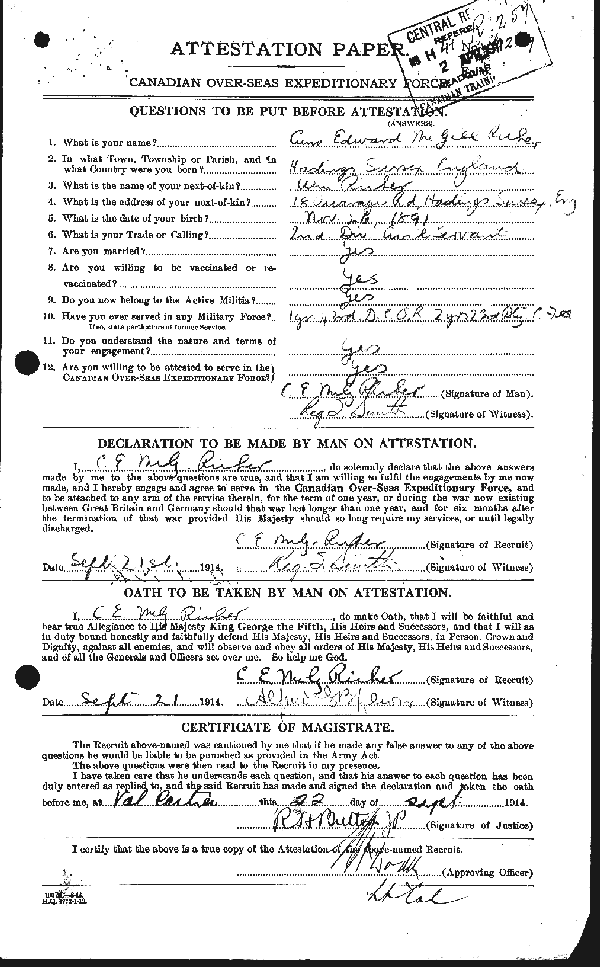 CENTRAL RE
REFERE
2 APR 1917
CANADIAN TRAINI
ATTESTATION PAPER.
CANADIAN OVER-SEAS EXPEDITIONARY FORCE
QUESTIONS TO BE PUT BEFORE ATTESTATION.
(ANSWERS).
1. What is your name? Edward McGill
2. In what Town, Township or Parish, and in
what Country were you born? Hastings Sussex England
3. What is the name of your next-of-kin?
4. What is the address of your next-of-kin? 18 Rd Hastings Sussex, Eng
5. What is the date of your birth? Nov 28, 1891
6. What is your Trade or Calling? 2nd Div Civil Servant
7. Are you married? yes
8. Are you willing to be vaccinated or re-
vaccinated? Yes
9. Do you now belong to the Active Militia? Yes
10. Have you ever served in any Military Force? 1 yr 2nd D.C.O.R. 2 yrs 23rd
If so, state particulars of former Service.
11. Do you understand the nature and terms of
your engagement? Yes
12. Are you willing to be attested to serve in the
CANADIAN OVER-SEAS EXPEDITIONARY FORCE? Yes
C E McG (Signature of Man).
Reg S Smith (Signature of Witness).
DECLARATION TO BE MADE BY MAN ON ATTESTATION.
I, C E McG , do solemnly declare that the above answers
made by me to the above questions are true, and that I am willing to fulfil the engagements by me now
made, and I hereby engage and agree to serve in the Canadian Over-Seas Expeditionary Force, and
to be attached to any arm of the service therein, for the term of one year, or during the war now existing
between Great Britain and Germany should that war last longer than one year, and for six months after
the termination of that war provided His Majesty should so long require my services, or until legally
discharged.
C E McG (Signature of Recruit)
Date Sept 21st. 1914. Reg S Smith (Signature of Witness)
OATH TO BE TAKEN BY MAN ON ATTESTATION.
I, C E McG , do make Oath, that I will be faithful and
bear true Allegiance to His Majesty King George the Fifth, His Heirs and Successors, and that I will as
in duty bound honestly and faithfully defend His Majesty, His Heirs and Successors, in Person, Crown and
Dignity, against all enemies, and will observe and obey all orders of His Majesty, His Heirs and Successors,
and of all the Generals and Officers set over me. So help me God.
C E McG (Signature of Recruit)
Date Sept 21 1914. (Signature of Witness)
CERTIFICATE OF MAGISTRATE.
The Recruit above-named was cautioned by me that if he made any false answer to any of the above
questions he would be liable to be punished as provided in the Army Act.
The above questions were then read to the Recruit in my presence.
I have taken care that he understands each question, and that his answer to each question has been
duly entered as replied to, and the said Recruit has made and signed the declaration and taken the oath
before me, at Val Cartier this 22 day of Sept 1914.
JP (Signature of Justice)
I certify that the above is a true copy of the Attestation of the above-named Recruit.
(Approving Officer)
Lt Col